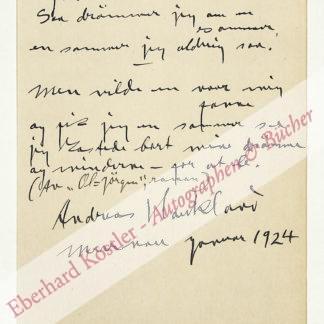 Saa drømmer jeg om en
sommer
en sommer jeg aldrig saa.
Men vilde en vaar mig
og fik jeg en sommer saa
jeg kastede bort mine drømme
og minderne – for at
(Av „Ol-Jørgen", roman)
Andreas Haukland
januar 1924
Eberhard Köstler - Autographen & Bücher